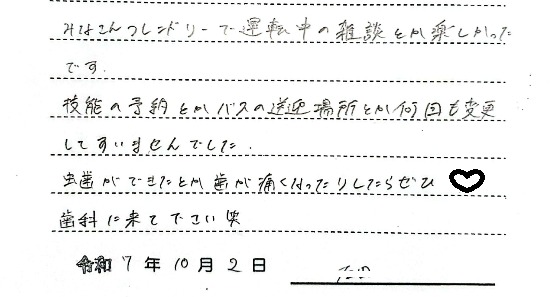 みなさんフレンドリーで運転中の雑談とか楽しかった
です.
技能の予約とかバスの送迎場所とか何回も変更
してすいませんでした.
虫歯ができたとか歯が痛くなったりしたらぜひ
歯科に来て下さい笑
令和7年10月2日